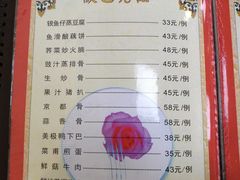 银鱼仔蒸豆腐 33元/例
鱼滑酿藕饼 43元/例
荠菜炒火腩 48元/例
豉汁蒸排骨 45元/例
生炒骨 45元/例
果汁猪扒 45元/例
京都骨 58元/例
蒜香骨 58元/例
美极鸭下巴 38元/例
菜甫煎蛋 35元/例
鲜菇牛肉 43元/例